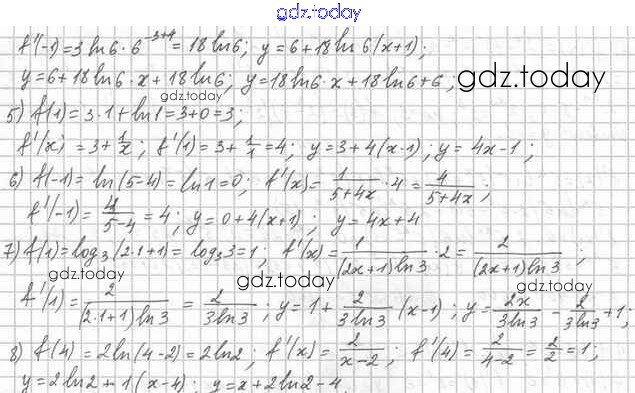 gdz.today
f'(-1)=3ln6·6^{-3+4}=18ln6; y=6+18ln6(x+1);
y=6+18ln6·x+18ln6; y=18ln6·x+18ln6+6;
gdz.today
gdz.today
5) f(1)=3·1+ln1=3+0=3;
f'(x)=3+1/x; f'(1)=3+1/1=4; y=3+4(x-1); y=4x-1;
6) f(-1)=ln(5-4)=ln1=0; f'(x)=1/(5+4x)·4=4/(5+4x);
gdz.today
f'(-1)=4/(5-4)=4; y=0+4(x+1); y=4x+4
7) f(1)=log₃(2·1+1)=log₃3=1; f'(x)=1/((2x+1)ln3)·2=2/((2x+1)ln3);
gdz.today
gdz.today
gdz.today
f'(1)=2/((2·1+1)ln3)=2/(3ln3); y=1+2/(3ln3)(x-1); y=2x/(3ln3)-2/(3ln3)+1;
8) f(4)=2ln(4-2)=2ln2; f'(x)=2/(x-2); f'(4)=2/(4-2)=2/2=1;
gdz.today
y=2ln2+1(x-4); y=x+2ln2-4